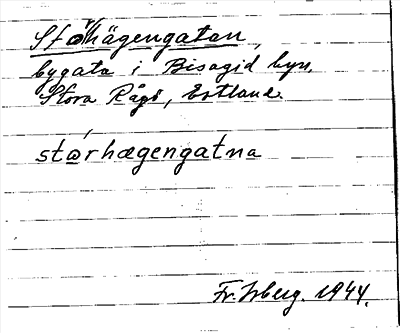 Storhägengatan,
bygata i Bisagid byn.
Stora Rågö, Estland
stɷrhægengatna
Fr. Isberg. 1944.